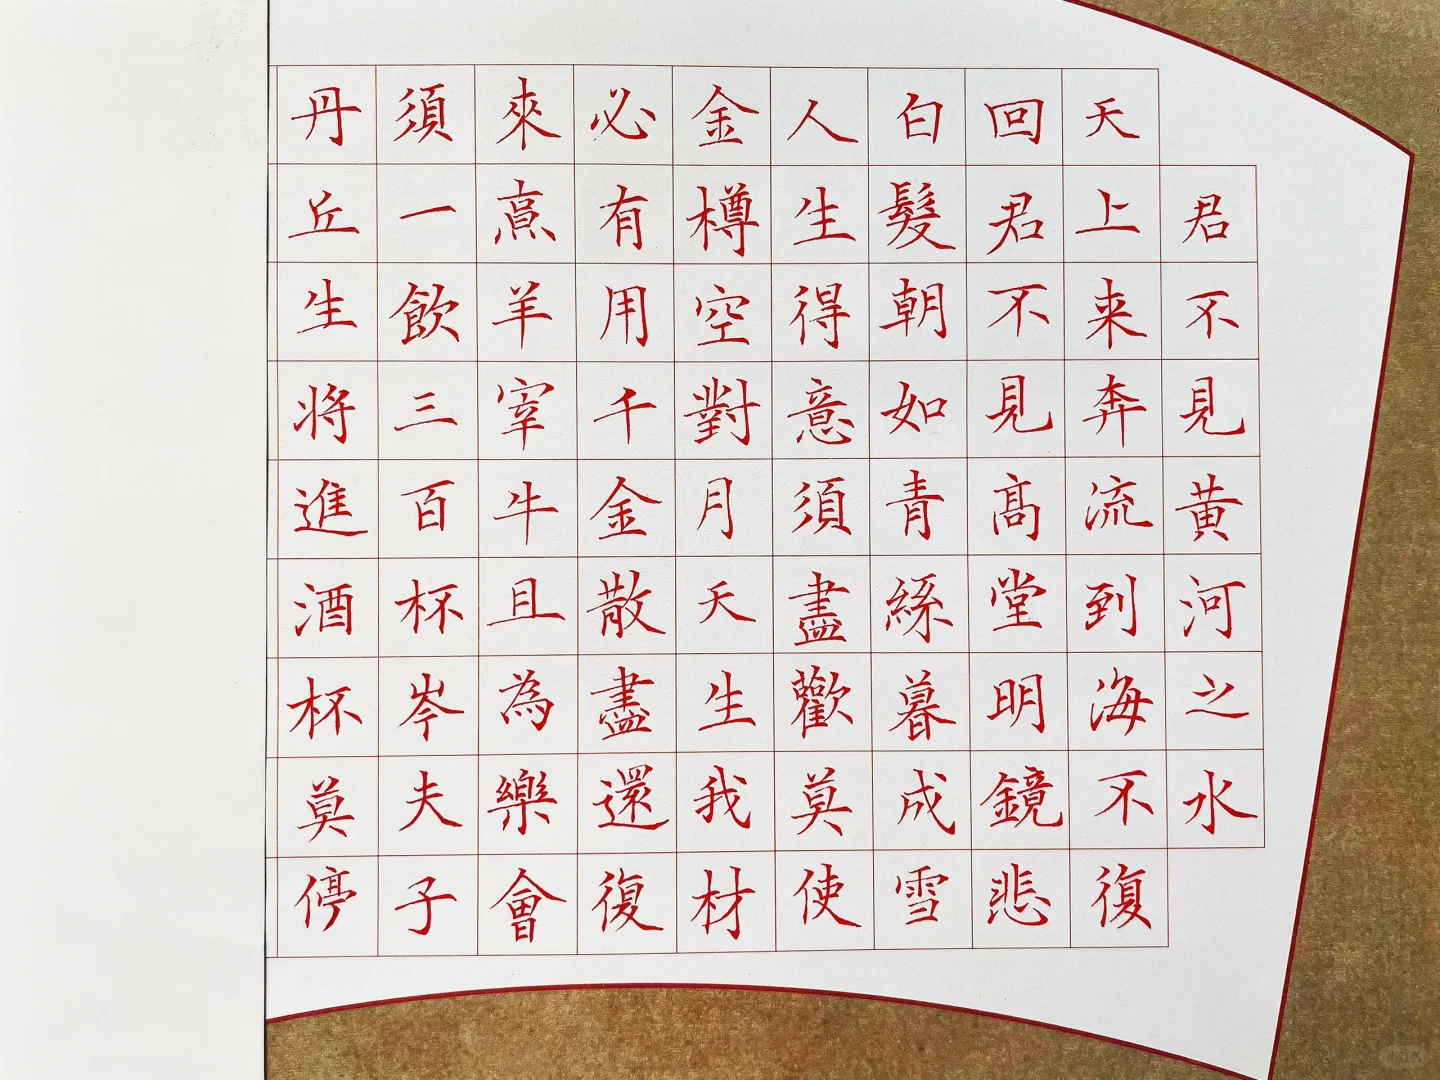 君不見黄河之水
天上来奔流到海不復
回君不見髙堂明鏡悲
白髮朝如青絲暮成雪
人生得意須盡歡莫使
金樽空對月天生我材
必有用千金散盡還復
來烹羊宰牛且為樂會
須一飲三百杯岑夫子
丹丘生将進酒杯莫停